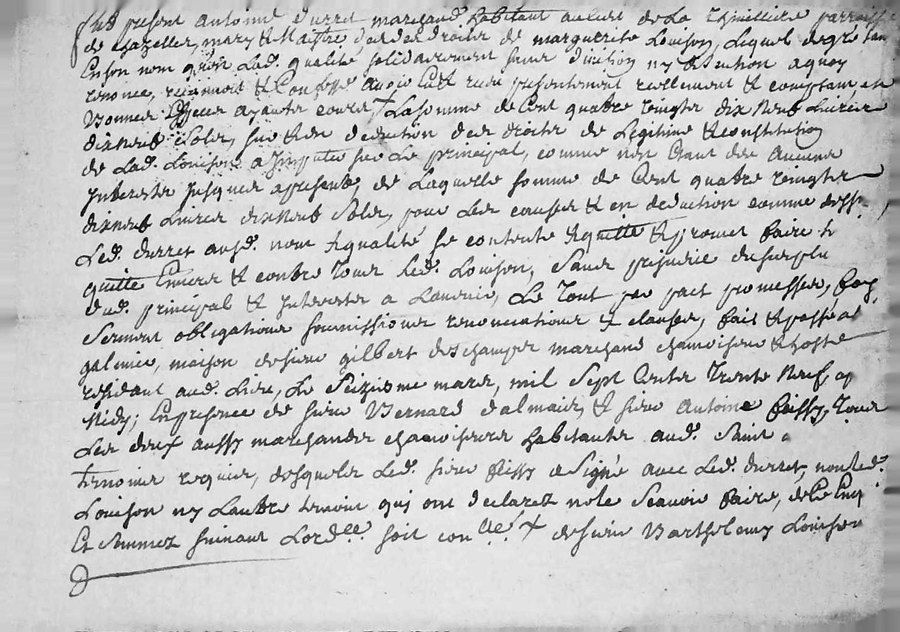 fut présent antoine durret marchand habitant au lieu de La Thuilliere parroisse
de chazelles, mary & Maistre des droits de marguerite Louison, Lequel de gré tant
En son nom qu'en Lad. qualité solidairement sans division ny discution a quoy
renonce, reconnoit & Confesse avoir Eu & receu presentement reellement & comptant en
bonnes Especes ayants cours + La somme de Cent quatre vingts dix neuf Livres
dix neuf Sols, sur & en deduction des droits de Legitime & constitution
de Lad. Louison a Imputer sur Le principal, comme non Etant deu Aucuns
Interests Jusques a present, de Laquelle somme de Cent quatre vingts
dix neuf Livres dix neuf Sols, pour Les causes & en deduction comme dessus,
Led. durret aud. nom & qualité se contente & quitte & promet faire t
quitte Envers & contre tous Led. Louison, Sans prejudice du surplus
dud. principal & Interests a Lavenir, Le Tout par pact promesses, foy,
serment obligations soumissions renonciations & clauses, fait & passé a
galmier, maison de sieur gilbert deschamps marchand chamoiseur & hoste
residant aud. Lieu, Le Seizieme mars, mil Sept Cents Trente Neuf, ap
Midy; En presence de sieur Bernard dalmais, & sieur Antoine faissy, Tous
Les deux aussy marchands chamoiseurs habitants aud. Saint
temoins requis, desquels Led. sieur faissy a Signé avec Led. durret, non Led.
Louison ny Lautre temoin qui ont declarez ne le Scavoir faire, de ce Enq.
Et Sommez suivant Lord.ce soit con.lle + de sieur Barthelemy Louison